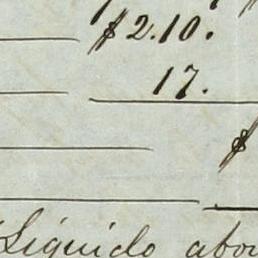 $2.10.
17.
$
Liquido